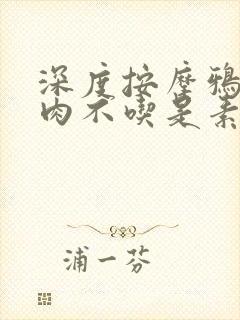 深度按摩鴉
肉不喫是素
浦一芬